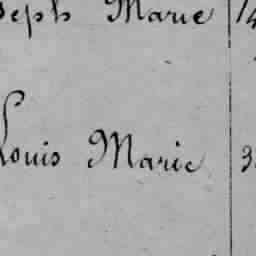 seph Marie 14
Louis Marie 3